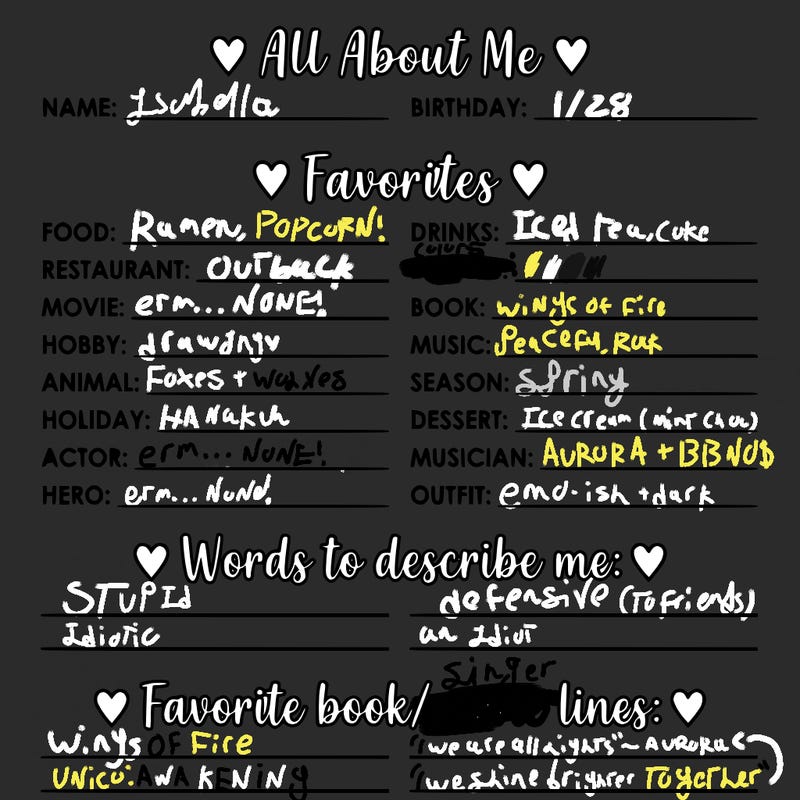 ♥ All About Me ♥
NAME: Isabella BIRTHDAY: 1/28
♥ Favorites ♥
FOOD: Ramen, POPCORN! DRINKS: Iced Tea, Coke
RESTAURANT: OUTback Colors:
MOVIE: erm... NONE! BOOK: wings of Fire
HOBBY: MUSIC: Peaceful,
ANIMAL: Foxes + wolves SEASON: Spring
HOLIDAY: HANakuh DESSERT: Ice cream (mint choc)
ACTOR: erm... NONE! MUSICIAN: AURORA + BBNO$
HERO: erm... OUTFIT: emo-ish + dark
♥ Words to describe me: ♥
STUPId defensive (To friends)
Idiotic an Idiot
singer
♥ Favorite book/ lines: ♥
Wings OF Fire "we are all" ~ AURORA
UNICO: AWAKENING "we shine brighter Together"